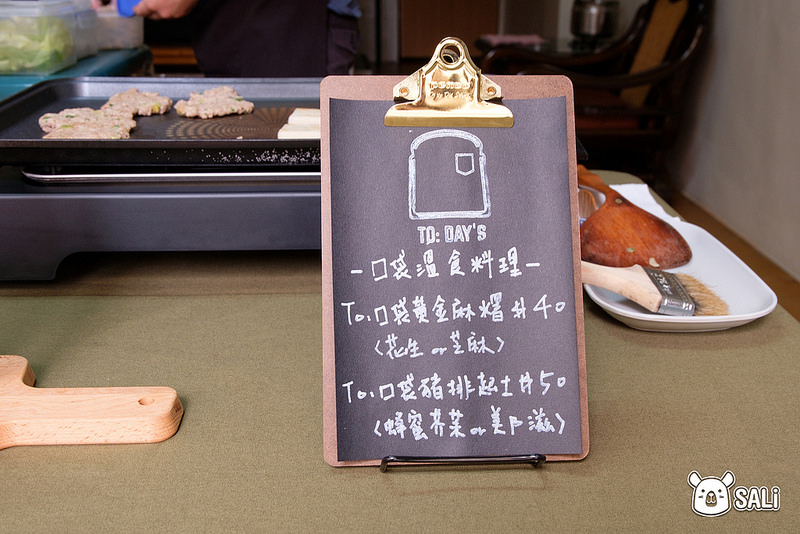 TO: DAY'S
－口袋溫食料理－
To:口袋黃金麻糬 $40
〈花生 or 芝麻〉
To:口袋豬排起士 $50
〈蜂蜜芥茉 or 美乃滋〉
SALi